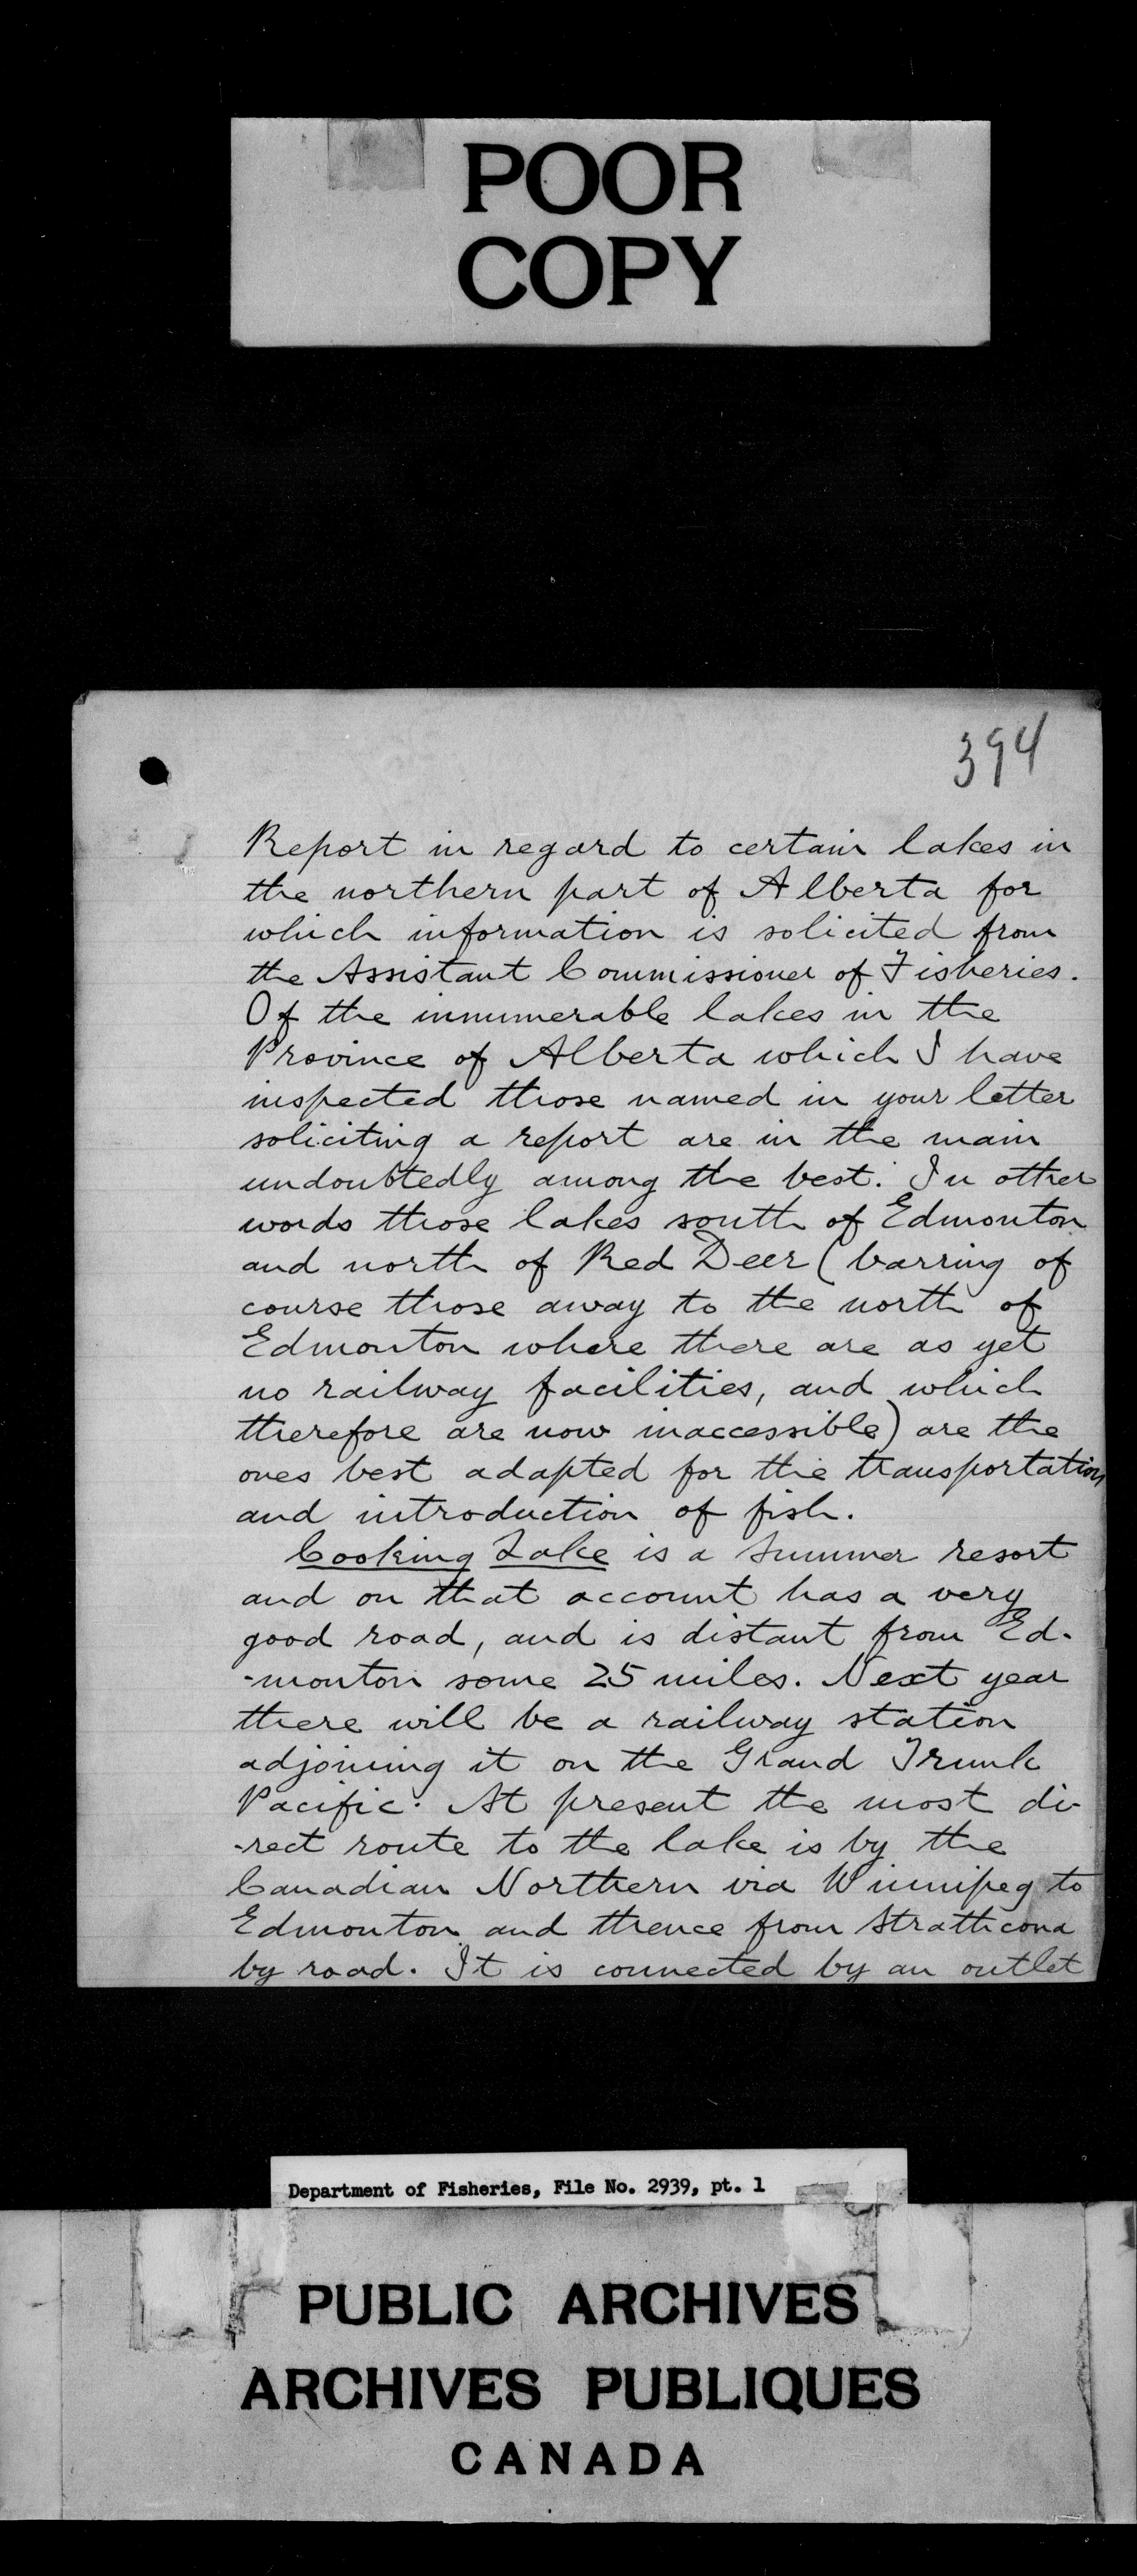 POOR
COPY
394
Report in regard to certain lakes in
the northern part of Alberta for
which information is solicited from
the Assistant Commissioner of Fisheries.
Of the innumerable lakes in the
Province of Alberta which I have
inspected those named in your letter
soliciting a report are in the main
undoubtedly among the best. In other
words those lakes south of Edmonton
and north of Red Deer (barring of
course those away to the north of
Edmonton where there are as yet
no railway facilities, and which
therefore are now inaccessible) are the
ones best adapted for the transportation
and introduction of fish.
Cooking Lake is a summer resort
and on that account has a very
good road, and is distant from Ed-
-monton some 25 miles. Next year
there will be a railway station
adjoining it on the Grand Trunk
Pacific. At present the most di-
-rect route to the lake is by the
Canadian Northern via Winnipeg to
Edmonton and thence from Strathcona
by road. It is connected by an outlet
Department of Fisheries, File No. 2939, pt. 1
PUBLIC ARCHIVES
ARCHIVES PUBLIQUES
CANADA